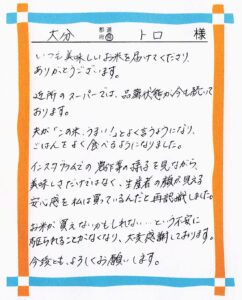 大分 都道府県 トロ 様
いつも美味しいお米を届けてくださり
ありがとうございます。
近所のスーパーでは、品薄状態が今も続いて
おります。
夫が「この米、うまい!」とよく言うようになり、
ごはんをよく食べるようになりました。
インスタグラムでの農作業の様子を見ながら、
美味しさだけではなく、生産者の顔が見える
安心感を私は買っているんだと再認識しました。
お米が買えないかもしれない…という不安に
駆られることがなくなり、大変感謝しております。
今後とも、よろしくお願いします。